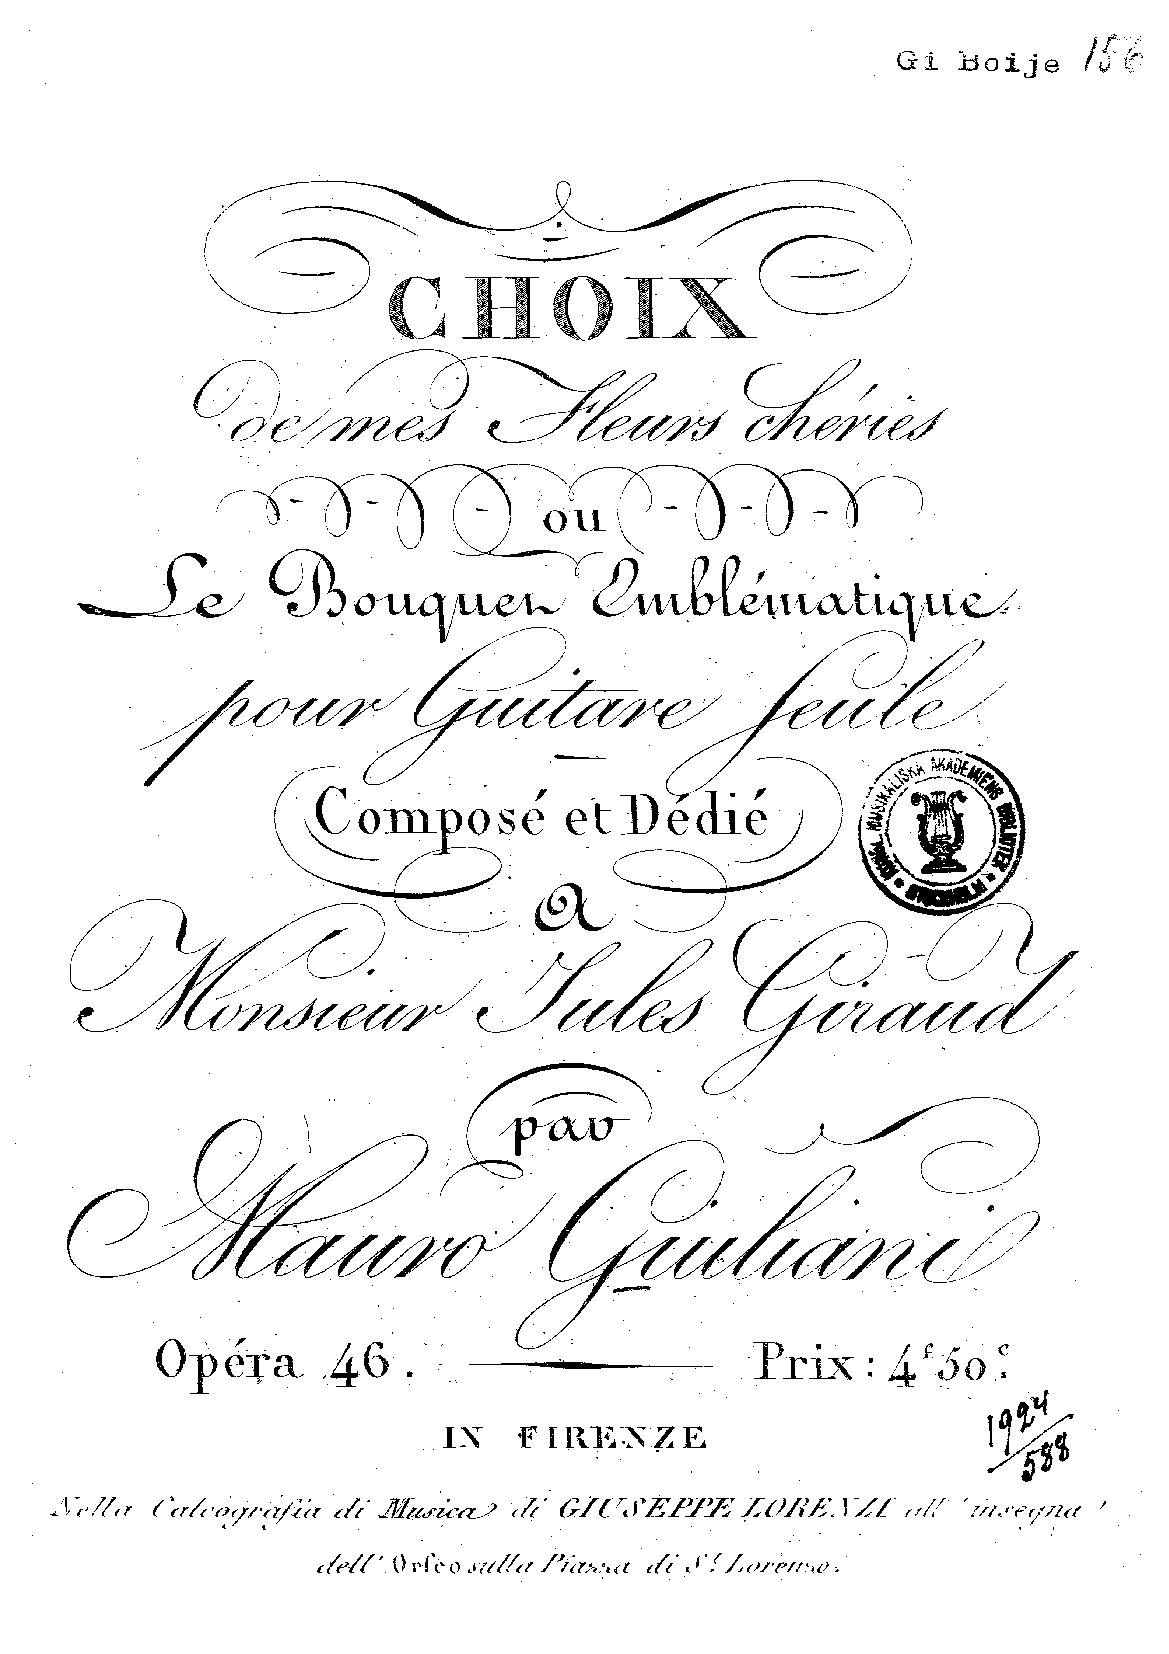 Gi Boije 156
CHOIX
de mes Fleurs chéries
ou
Le Bouquet Emblématique
pour Guitare Seule
Composé et Dédié
A
KONGL. MUSIKALISKA AKADEMIENS BIBLIOTEK
STOCKHOLM
Monsieur Jules Giraud
par
Mauro Giuliani
Opéra 46. Prix: 4f 50c
IN FIRENZE
1924/588
Nella Calcografia di Musica di GIUSEPPE LORENZI all' insegna
dell' Orfeo sulla Piazza di St. Lorenzo.